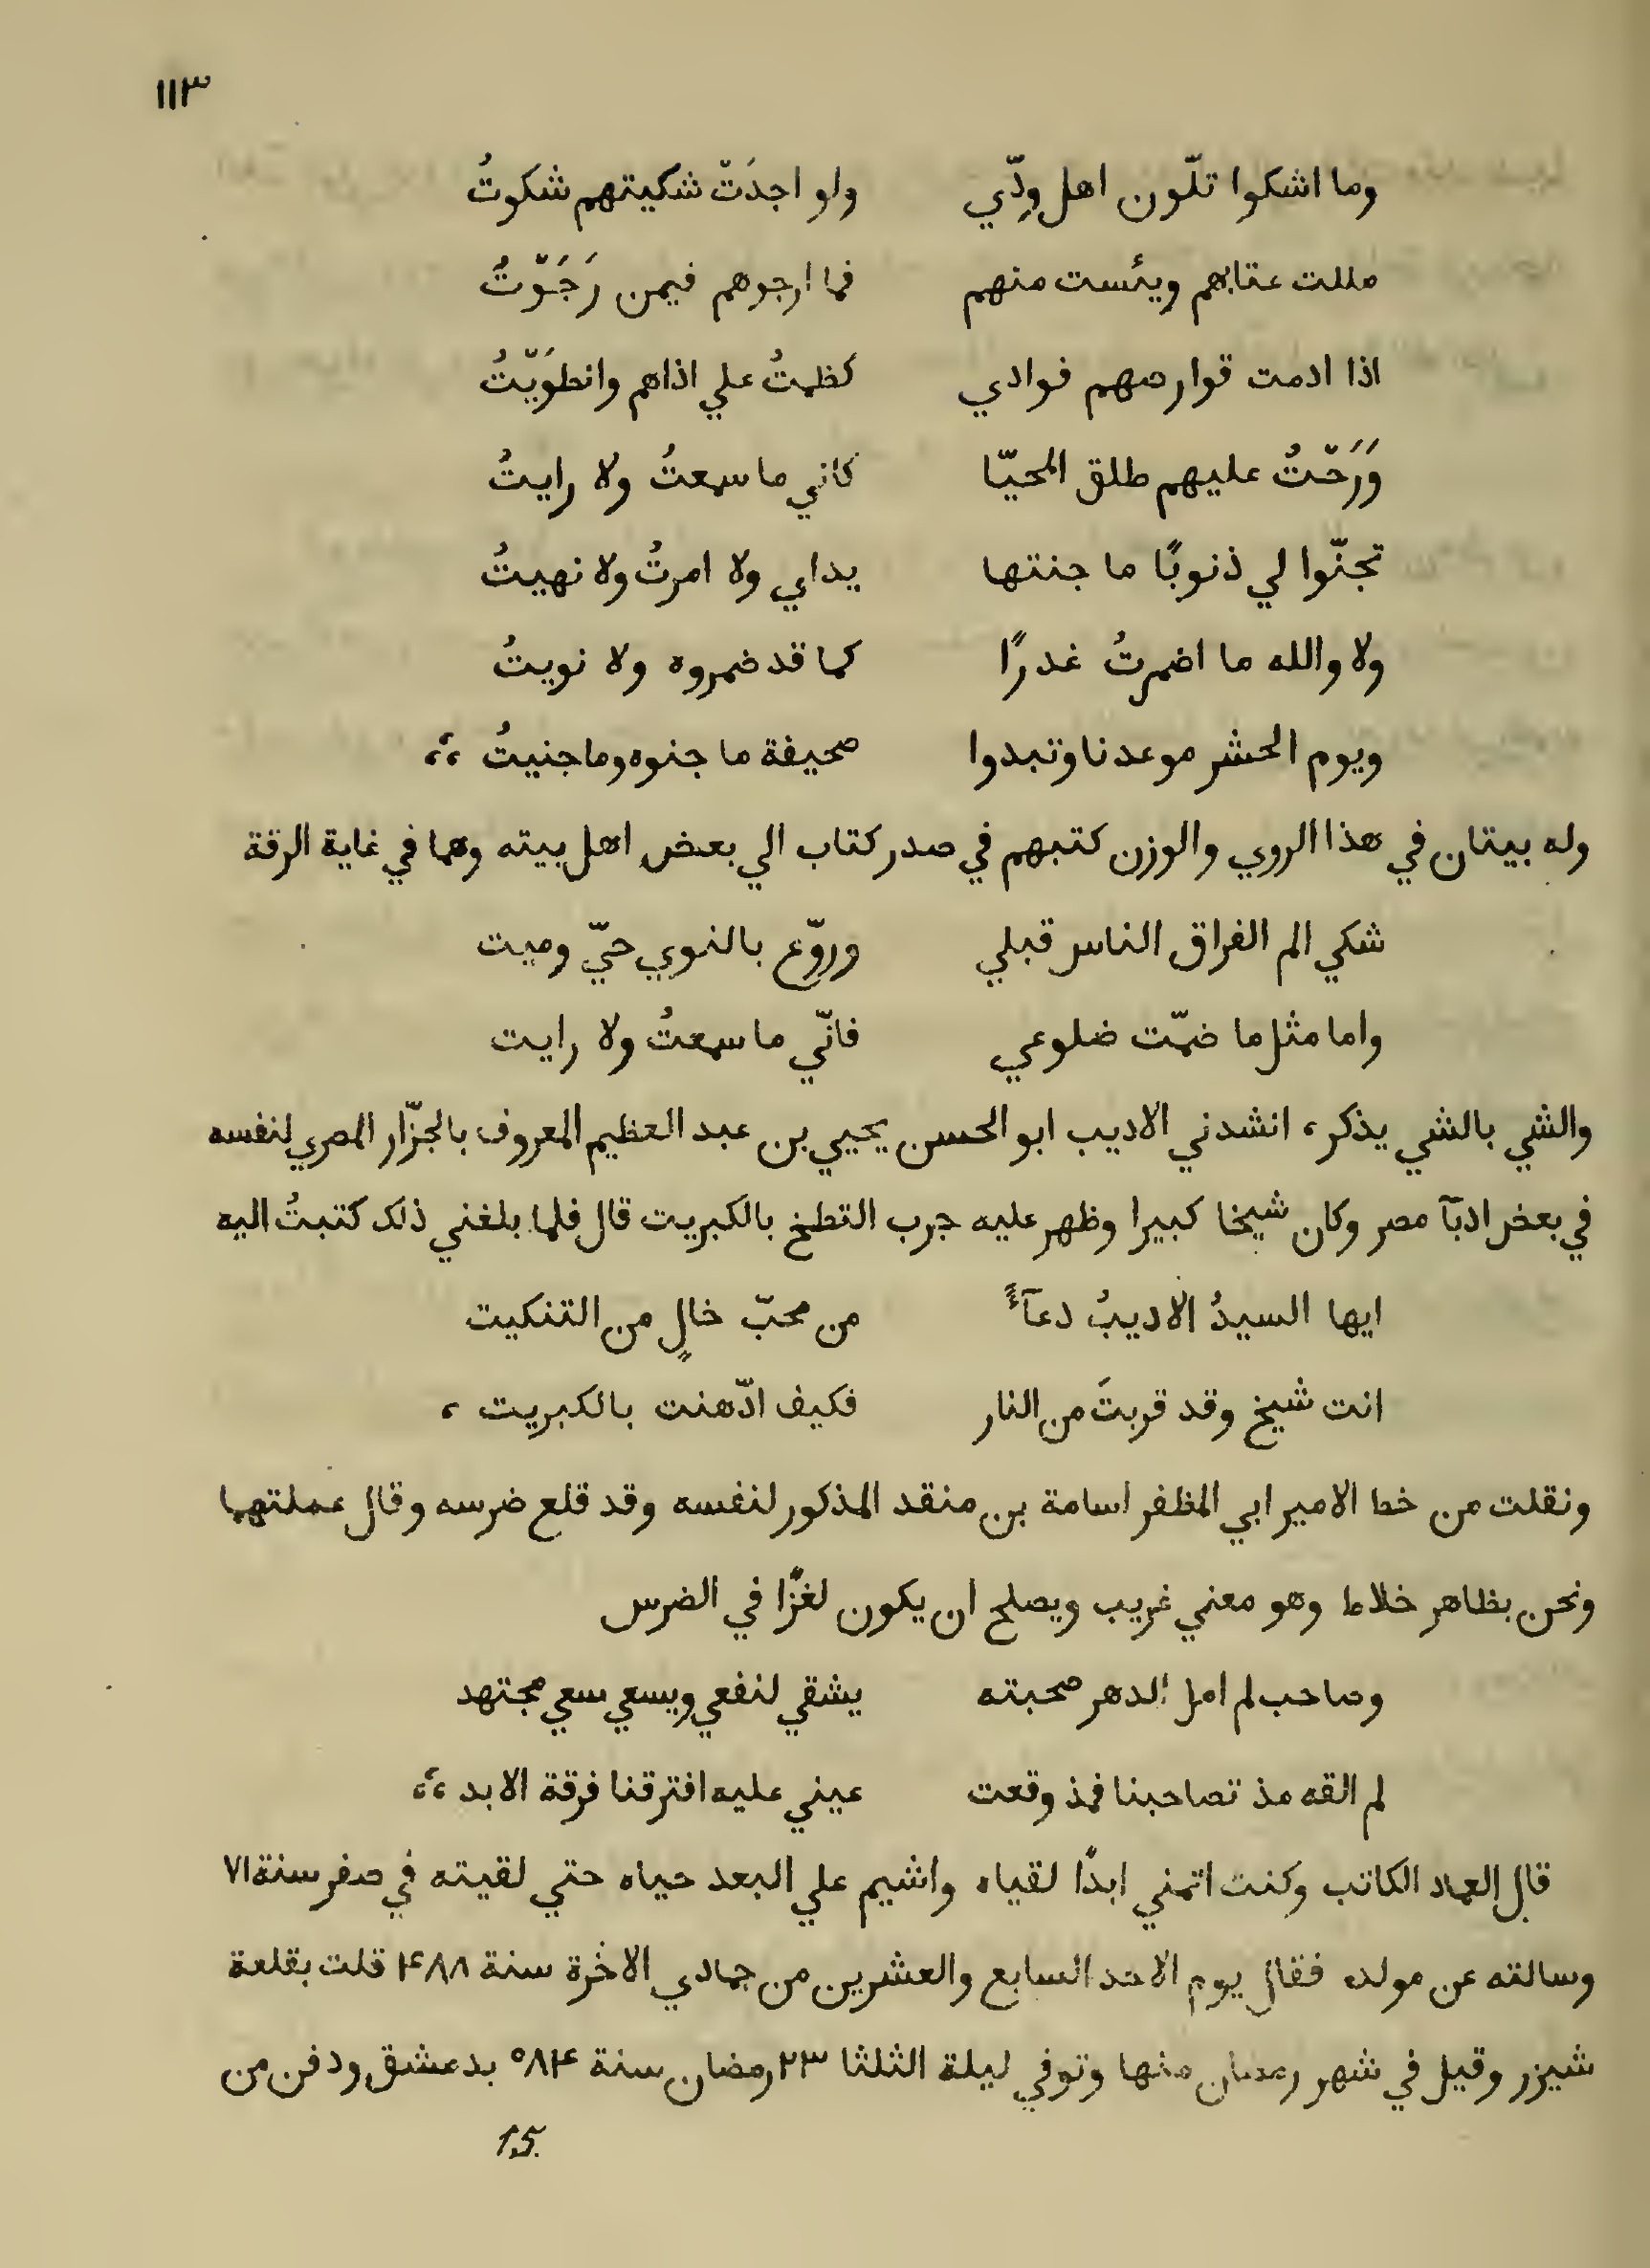 ١١٣
وما اشكوا تلّون اهل ودِّي ولو اجدَتْ شكيتهم شكوتُ
مللت عتابهم ويئست منهم فما ارجوهم فيمن رَجَوْتُ
اذا ادمت قوارصهم فوادي كظمتُ علي اذاهم وانطوَيْتُ
وَرَحْتُ عليهم طلق المحيّا كاني ما سمعتُ ولا رايتُ
تجنّوا لي ذنوبًا ما جنتها يداي ولا امرتُ ولا نهيتُ
ولا والله ما اضمرتُ غدرًا كما قد ضمروه ولا نويتُ
ويوم الحشر موعدنا وتبدوا صحيفة ما جنوه وما جنيتُ ،،
وله بيتان في هذا الروي والوزن كتبهم في صدر كتاب الي بعض اهل بيته وهما في غاية الرقة
شكي الم الفراق الناس قبلي وروّع بالنوي حيّ وميت
واما مثل ما ضمّت ضلوعي فانّي ما سمعتُ ولا رايت
والشي بالشي يذكر ، انشدني الاديب ابو الحسن يحيي بن عبد العظيم المعروف بالجزّار المصري لنفسه
في بعض ادبآ مصر وكان شيخا كبيرا وظهر عليه جرب التطخ بالكبريت قال فلما بلغني ذلك كتبتُ اليه
ايها السيدُ الاديبُ دعآءً من محبّ خالٍ من التنكيت
انت شيخ وقد قربتَ من النار فكيف ادّهنت بالكبريت ،
ونقلت من خط الامير ابي المظفر اسامة بن منقد المذكور لنفسه وقد قلع ضرسه وقال عملتها
ونحن بظاهر خلاط وهو معني غريب ويصلح ان يكون لغزًا في الضرس
وصاحب لم امل الدهر صحبته يشقي لنفعي ويسعي سعي مجتهد
لم القه مذ تصاحبنا فمذ وقعت عيني عليه افترقنا فرقة الابد ،،
قال العماد الكاتب وكنت اتمني ابدًا لقياه واشيم علي البعد حياه حتي لقيته في صفر سنة ٧١
وسالته عن مولده فقال يوم الاحد السابع والعشرين من جمادي الاخرة سنة ۴٨٨ قلت بقلعة
شيزر وقيل في شهر رمضان منها وتوفي ليلة الثلثا ٢٣ رمضان سنة ٥٨۴ بدمشق ودفن من
15.